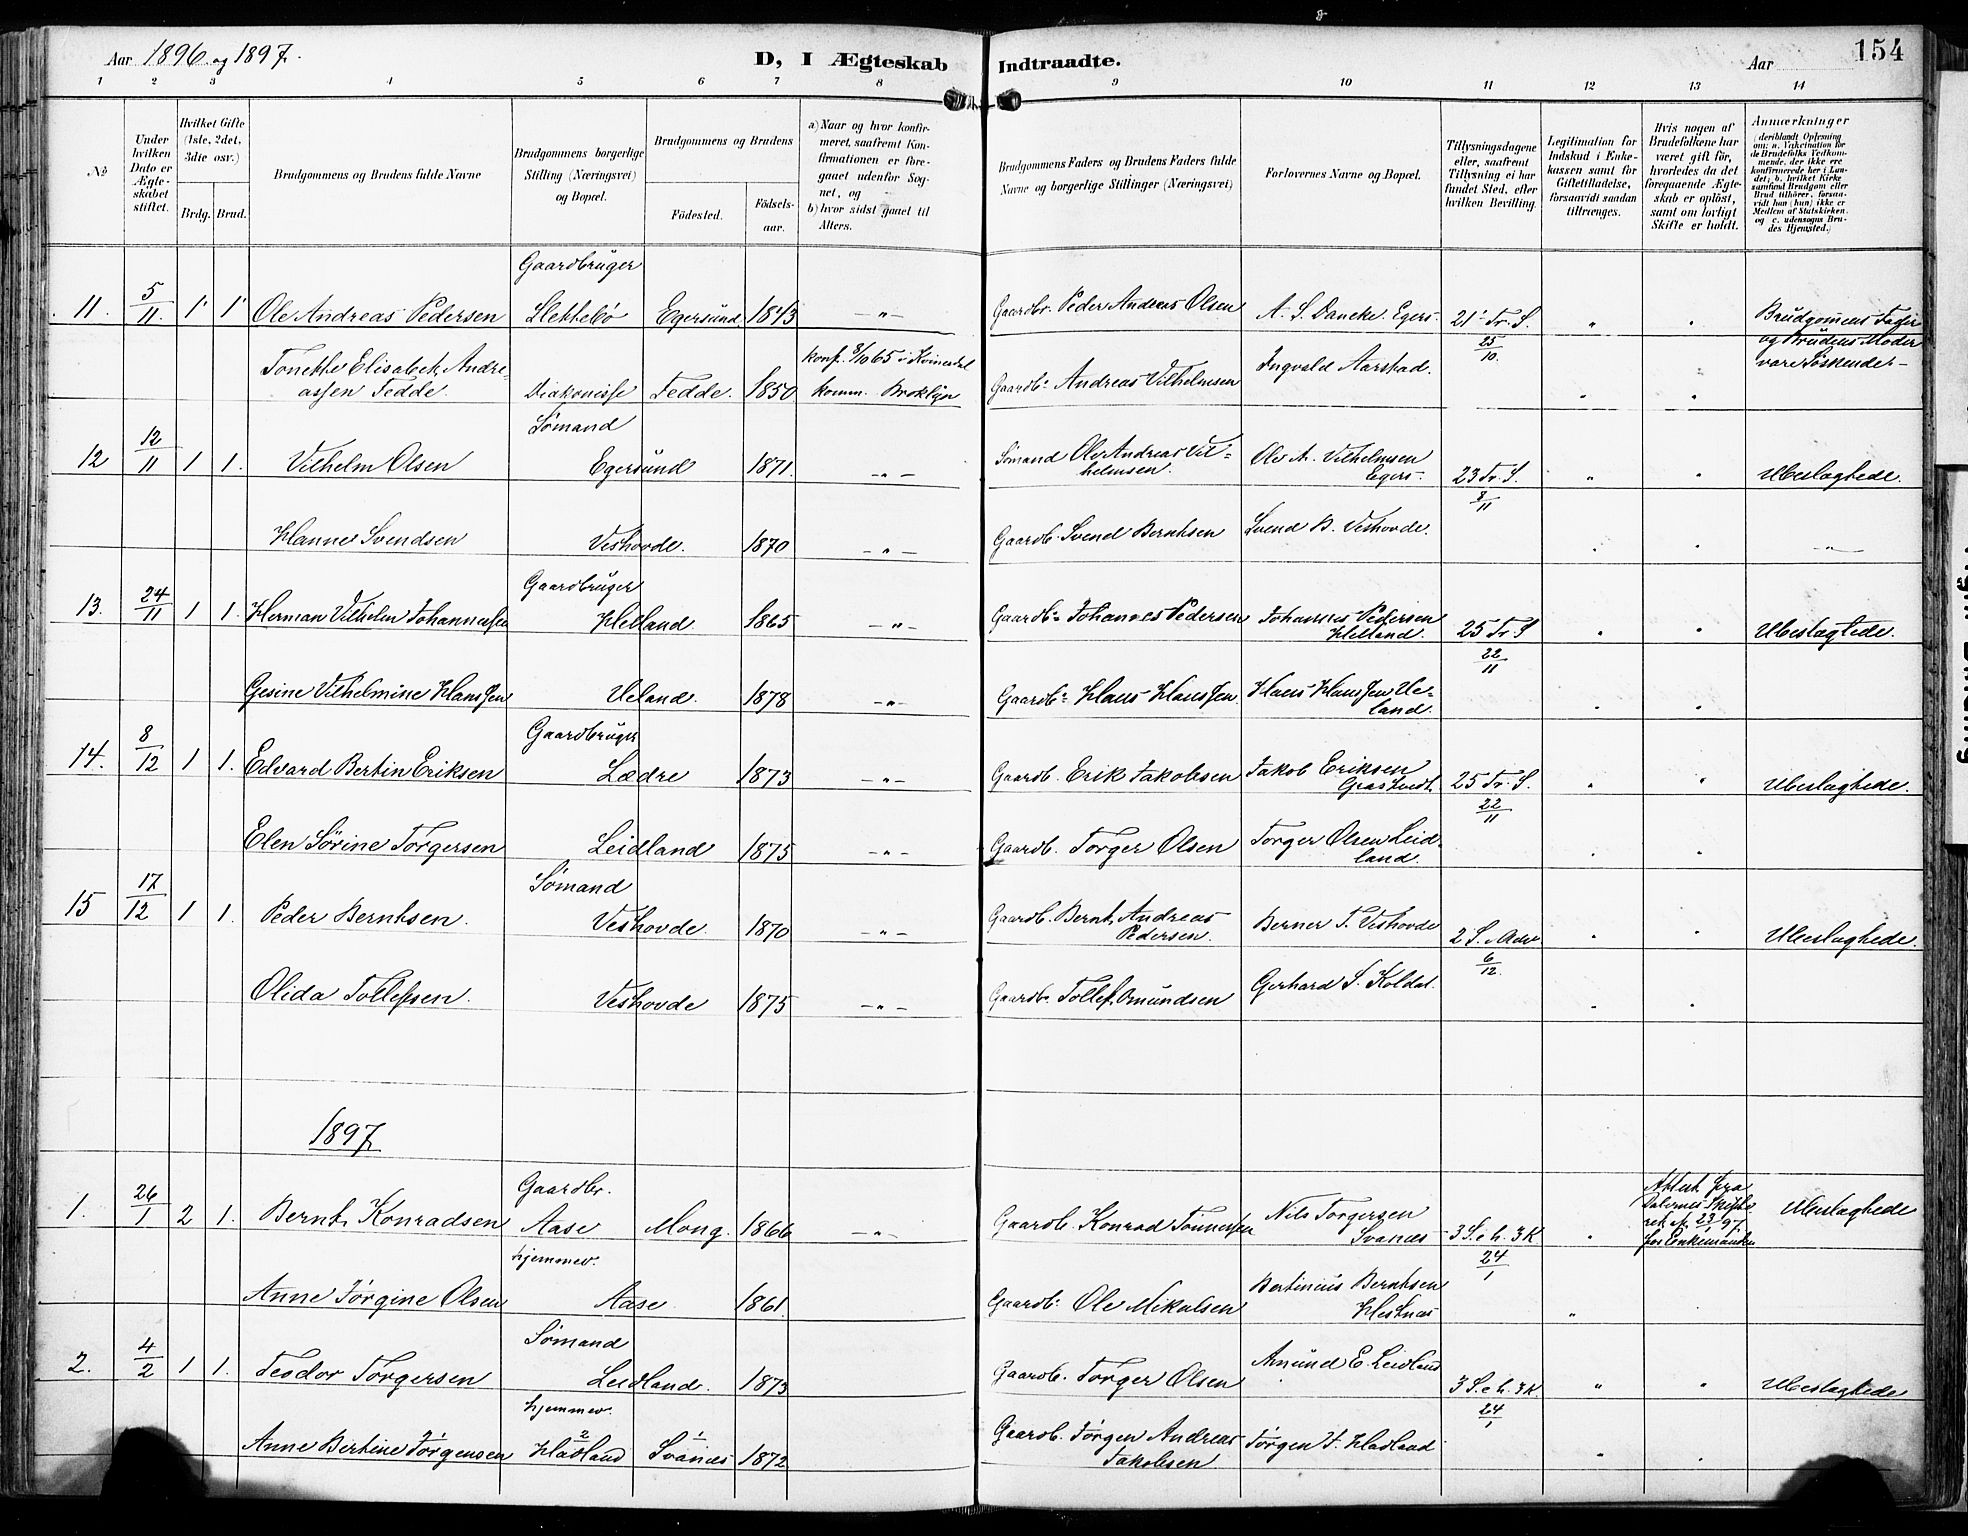 Aar 1896 og 1897.
D, I Ægteskab Indtraadte.
Aar
154
1 2 3 4 5 6 7 8 9 10 11 12 13 14
№
Under hvilken Dato er Ægteskabet stiftet.
Hvilket Gifte (1ste, 2det, 3die osv.)
Brdg. Brud.
Brudgommens og Brudens fulde Navne
Brudgommens borgerlige Stilling (Næringsvei) og Bopæl.
Brudgommens og Brudens
Fødested.
Fødselsaar.
a) Naar og hvor konfirmeret, saafremt Konfirmationen er foregaaet udenfor Sognet, og
b) hvor sidst gaaet til Alters.
Brudgommens Faders og Brudens Faders fulde Navne og borgerlige Stillinger (Næringsvei)
Forlovernes Navne og Bopæl.
Tillysningsdagene eller, saafremt Tillysning ei har fundet Sted, efter hvilken Bevilling.
Legitimation for Indskud i Enkekassen samt for Giftetilladelse, forsaavidt saadan tiltrænges.
Hvis nogen af Brudefolkene har været gift før, hvorledes da det foregaaende Ægteskab er opløst, samt om lovligt Skifte er holdt.
Anmærkninger
(deriblandt Oplysning om: a. Vakcination for de Brudefolks Vedkommende, der ikke ere konfirmerede her i Landet; b. hvilket Kirkesamfund Brudgom eller Brud tilhører, forsaavidt han (hun) ikke er Medlem af Statskirken, og c. udensogns Brudes Hjemsted.)
Gaardbruger
11. 5/11 1 1 Ole Andreas Pedersen Slettebø Egersund 1843 -"- Gaardbr. Peder Andreas Olsen A. S. Dancke Egers. 21 Tr. S. 25/10 " " Brudgomens Fader og Brudens Moder vare Søskende.-
Tonette Elisabet Andreassen Fedde. Diakonisse Fedde. 1850 konf. 8/10 65 i Kvinesdal komm. Broklyn Gaardb. Andreas Vilhelmsen Ingvald Aarstad. " "
Sømand
12 12/11 1 1. Vilhelm Olsen Egersund 1871. -"- Sømand Ole Andreas Vilhelmsen. Ole A. Vilhelmsen Egers. 23 Tr. S. 8/11 " " Ubeslægtede.
Hanne Svendsen Veshovde. 1870 -"- Gaardb. Svend Berntsen Svend B. Veshovde. " " "
Gaardbruger
13. 24/11 1 1. Herman Vilhelm Johannessen Helland. 1865 -"- Gaardb. Johannes Pedersen Johannes Pedersen Helland. 25 Tr. S 22/11 " " Ubeslægtede.
Gesine Vilhelmine Hanssen Ueland. 1878 -"- Gaardb. Hans Hanssen Hans Hanssen Ueland. " "
Gaardbruger
14. 8/12 1 1. Edvard Bertin Eriksen Lædre 1873 -"- Gaardb. Erik Jakobsen Jakob Eriksen 25 Tr. S. 22/11 " " Ubeslægtede.
Elen Sørine Torgersen Leidland 1875 -"- Gaardb. Torger Olsen Torger Olsen Leidland. " "
Sømand
15 17/12 1 1. Peder Berntsen. Veshovde. 1870 -"- Gaardb. Bernt Andreas Pedersen. Berner T. Veshovde 2 S. i Adv 6/12. " " Ubeslægtede.
Olida Tollefsen. Veshovde 1875 -"- Gaardb. Tollef Omundsen Gerhard S. Koldal. " "
1897
Gaardbr.
1. 26/1 2 1. Bernt Konradsen Aase Mong. 1866 -"- Gaardb. Konrad Tønnessen Nils Torgersen Svanes 3 S. e h. 3 K 24/1 " Attest fra Dalernes Skifteret af 23/1 97. for Enkemanden Ubeslægtede
hjemmev.
Anne Jørgine Olsen Aase 1861. Gaardb. Ole Mikalsen Bertinius Berntsen Hestnes "
Sømand
2. 4/2 1 1. Teodor Torgersen Leidland. 1873 Gaardb. Torger Olsen Amund E. Leidland 3 S. e h. 3 K. 24/1 " " Ubeslægtede
hjemmev.
Anne Bertine Jørgensen Hadland Svanes 1872 Gaardb. Jørgen Andreas Jakobsen Jørgen J. Hadland " "